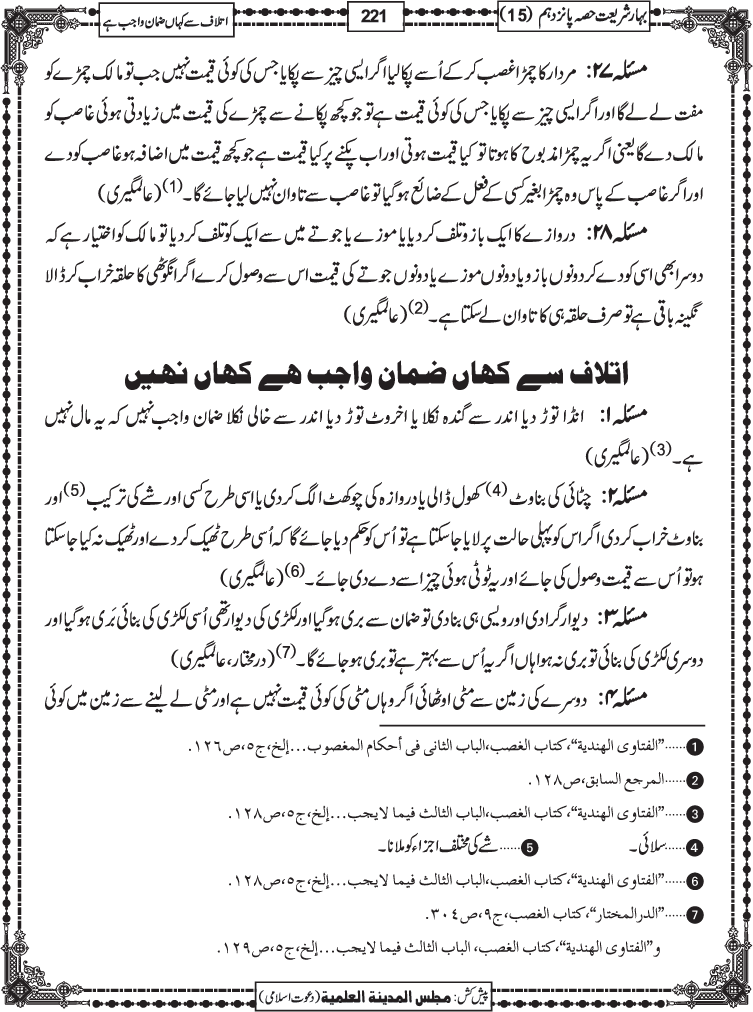 بہار شریعت حصہ پانزدہم (15)
221
اتلاف سے کہاں ضمان واجب ہے
مسئلہ ۲۷: مردار کا چمڑا غصب کر کے اُسے پکا لیا اگر ایسی چیز سے پکایا جس کی کوئی قیمت نہیں جب تو مالک چمڑے کو
مفت لے لے گا اور اگر ایسی چیز سے پکایا جس کی کوئی قیمت ہے تو جو کچھ پکانے سے چمڑے کی قیمت میں زیادتی ہوئی غاصب کو
مالک دے گا یعنی اگر یہ چمڑا مذبوح کا ہوتا تو کیا قیمت ہوتی اور اب پکنے پر کیا قیمت ہے جو کچھ قیمت میں اضافہ ہو غاصب کو دے
اور اگر غاصب کے پاس وہ چمڑا بغیر کسی کے فعل کے ضائع ہو گیا تو غاصب سے تاوان نہیں لیا جائے گا۔(1) (عالمگیری)
مسئلہ ۲۸: دروازے کا ایک بازو تلف کر دیا یا موزے یا جوتے میں سے ایک کو تلف کر دیا تو مالک کو اختیار ہے کہ
دوسرا بھی اسی کو دے کر دونوں بازو یا دونوں موزے یا دونوں جوتے کی قیمت اس سے وصول کرے اگر انگوٹھی کا حلقہ خراب کر ڈالا
نگینہ باقی ہے تو صرف حلقہ ہی کا تاوان لے سکتا ہے۔(2) (عالمگیری)
اتلاف سے کہاں ضمان واجب ہے کہاں نہیں
مسئلہ ۱: انڈا توڑ دیا اندر سے گندہ نکلا یا اخروٹ توڑ دیا اندر سے خالی نکلا ضمان واجب نہیں کہ یہ مال نہیں
ہے۔(3) (عالمگیری)
مسئلہ ۲: چٹائی کی بناوٹ (4) کھول ڈالی یا دروازہ کی چوکھٹ الگ کر دی یا اسی طرح کسی اور شے کی ترکیب (5) اور
بناوٹ خراب کر دی اگر اس کو پہلی حالت پر لایا جا سکتا ہے تو اُس کو حکم دیا جائے گا کہ اُسی طرح ٹھیک کر دے اور ٹھیک نہ کیا جا سکتا
ہو تو اُس سے قیمت وصول کی جائے اور یہ ٹوٹی ہوئی چیز اسے دے دی جائے۔(6) (عالمگیری)
مسئلہ ۳: دیوار گرا دی اور ویسی ہی بنا دی تو ضمان سے بری ہو گیا اور لکڑی کی دیوار تھی اُسی لکڑی کی بنائی بَری ہو گیا اور
دوسری لکڑی کی بنائی تو بری نہ ہوا ہاں اگر یہ اُس سے بہتر ہے تو بری ہو جائے گا۔(7) (درمختار، عالمگیری)
مسئلہ ۴: دوسرے کی زمین سے مٹی اوٹھائی اگر وہاں مٹی کی کوئی قیمت نہیں ہے اور مٹی لے لینے سے زمین میں کوئی
1 ......”الفتاوی الهندیة“،کتاب الغصب،الباب الثانی فی أحکام المغصوب...إلخ،ج٥،ص١٢٦.
2 ......المرجع السابق،ص١٢٨.
3 ......”الفتاوی الهندیة“،کتاب الغصب،الباب الثالث فیما لایجب...إلخ،ج٥،ص١٢٨.
4 ......سلائی۔ 5 ......شے کی مختلف اجزاء کو ملانا۔
6 ......”الفتاوی الهندیة“،کتاب الغصب،الباب الثالث فیما لایجب...إلخ،ج٥،ص١٢٨.
7 ......”الدرالمختار“،کتاب الغصب،ج٩،ص٣٠٤.
و”الفتاوی الهندیة“،کتاب الغصب، الباب الثالث فیما لایجب...إلخ،ج٥،ص١٢٩.
پیش کش: مجلس المدینة العلمیة (دعوت اسلامی)